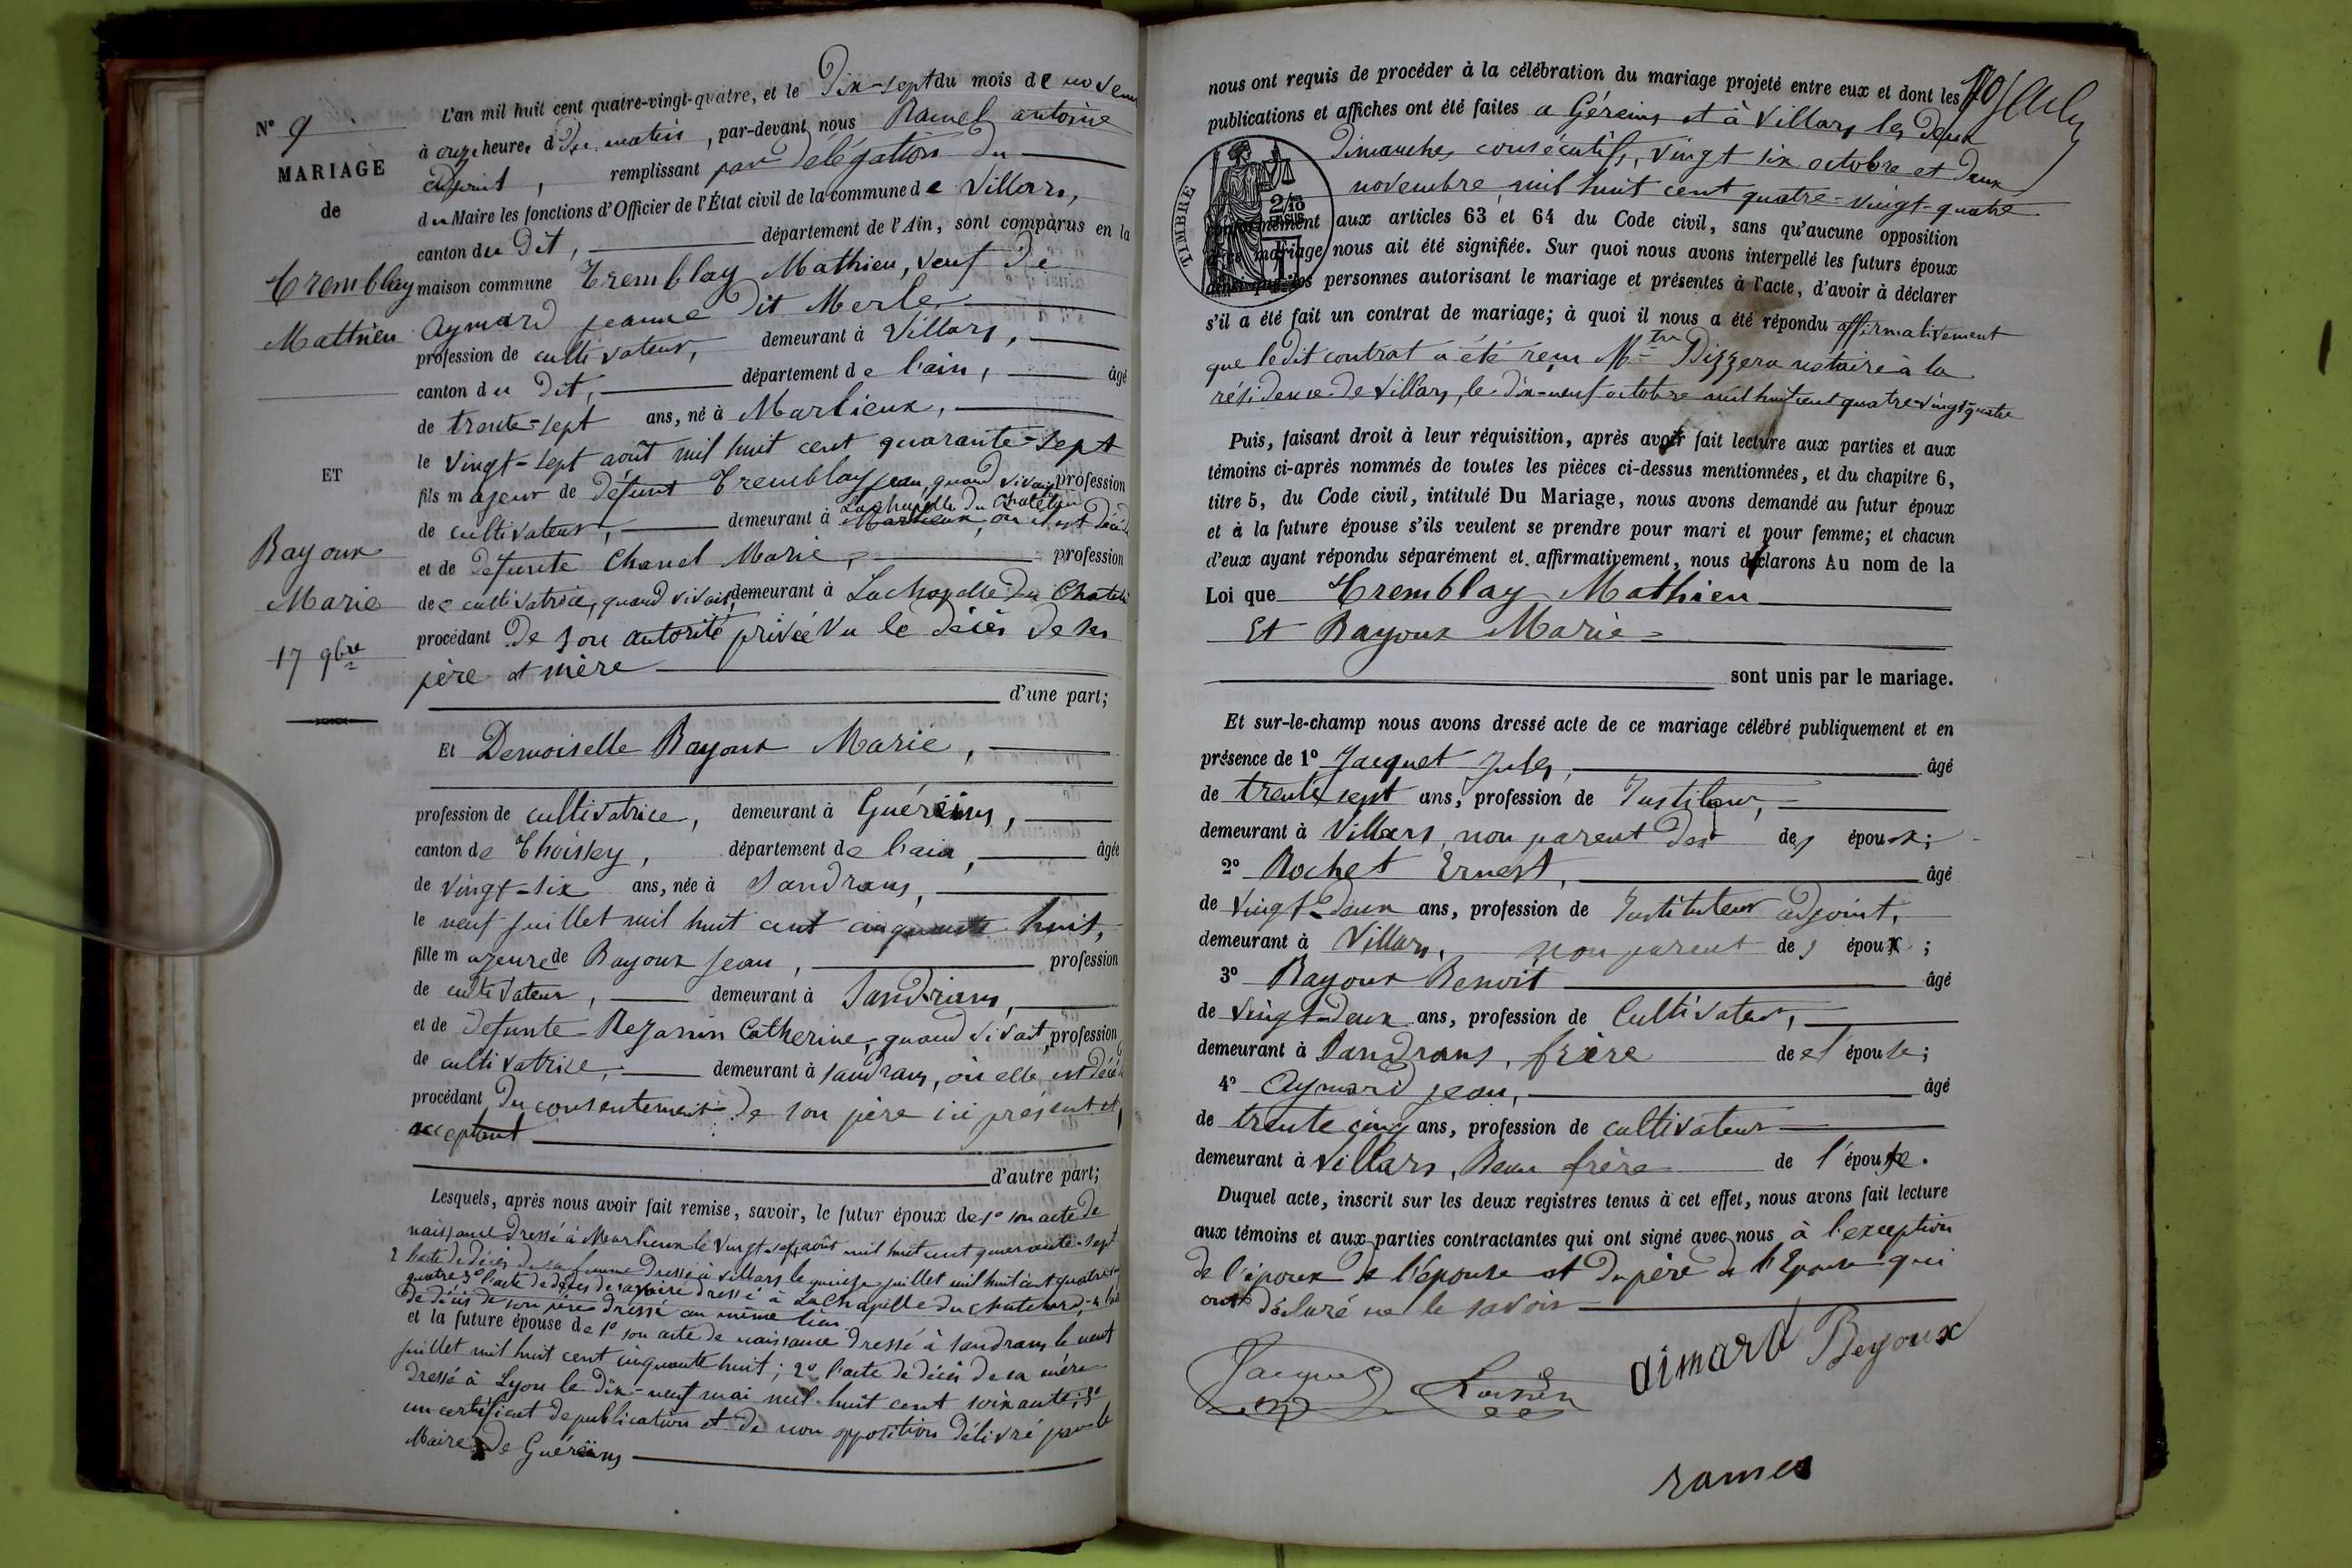 N° 9
MARIAGE
de
Tremblay
Mathieu
ET
Bayoux
Marie
17 9bre
L'an mil huit cent quatre-vingt-quatre, et le Dix-sept du mois de novem
à onze heures du matin, par-devant nous Ramel antoine
adjoint, remplissant par délégation du
du Maire les fonctions d'Officier de l'État civil de la commune de Villars,
canton du Dit, département de l'Ain, sont comparus en la
maison commune Tremblay Mathieu, veuf de
Aymard jeanne dit Merle
profession de cultivateur, demeurant à Villars,
canton du Dit, département de l'ain, âgé
de trente-sept ans, né à Marlieux,
le vingt-sept août mil huit cent quarante-sept
fils majeur de défunt Tremblay jean, quand vivait profession
Lachapelle du Chatelard
de cultivateur, demeurant à Marlieux, où il est décédé
et de défunte Chanel Marie, profession
de cultivatrice, quand vivait, demeurant à Lachapelle du Chatel
procédant de son autorité privée vu le décès de ses
père et mère
d'une part;
Et Demoiselle Bayoux Marie,
profession de cultivatrice, demeurant à Guéreins,
canton de Thoissey, département de l'ain, âgée
de vingt-six ans, née à Sandrans,
le neuf juillet mil huit cent cinquante huit,
fille majeure de Bayoux jean, profession
de cultivateur, demeurant à Sandrans,
et de défunte Rezanin Catherine, quand vivait, profession
de cultivatrice, demeurant à Sandrans, où elle est décé
procédant du consentement de son père ici présent et
acceptant
d'autre part;
Lesquels, après nous avoir fait remise, savoir, le futur époux de 1° son acte de
naissance dressé à Marlieux le vingt-sept août mil huit cent quarante-sept
2 l'acte de décès de sa femme dressé à Villars le quinze juillet mil huit cent quatre
quatre 3° l'acte de décès de sa mère dressé à La Chapelle du Chatelard
de décès de son père dressé au même lieu
et la future épouse de 1° son acte de naissance dressé à Sandrans le neuf
juillet mil huit cent cinquante huit; 2° l'acte de décès de sa mère
dressé à Lyon le dix-neuf mai mil huit cent soixante; 3°
un certificat de publication et de non opposition délivré par le
Maire de Guéreins
nous ont requis de procéder à la célébration du mariage projeté entre eux et dont les
publications et affiches ont été faites à Géreins et à Villars les deux
dimanches consécutifs, vingt six octobre et deux
novembre mil huit cent quatre-vingt-quatre
TIMBRE
conformément aux articles 63 et 64 du Code civil, sans qu'aucune opposition
à ce mariage nous ait été signifiée. Sur quoi nous avons interpellé les futurs époux
ainsi que les personnes autorisant le mariage et présentes à l'acte, d'avoir à déclarer
s'il a été fait un contrat de mariage; à quoi il nous a été répondu affirmativement
que le dit contrat a été reçu Mtre Dizzera notaire à la
résidence de Villars, le dix-neuf octobre mil huit cent quatre-vingt-quatre
Puis, faisant droit à leur réquisition, après avoir fait lecture aux parties et aux
témoins ci-après nommés de toutes les pièces ci-dessus mentionnées, et du chapitre 6,
titre 5, du Code civil, intitulé Du Mariage, nous avons demandé au futur époux
et à la future épouse s'ils veulent se prendre pour mari et pour femme; et chacun
d'eux ayant répondu séparément et affirmativement, nous déclarons Au nom de la
Loi que Tremblay Mathieu
Et Bayoux Marie
sont unis par le mariage.
Et sur-le-champ nous avons dressé acte de ce mariage célébré publiquement et en
présence de 1° Jacquet Jules, âgé
de trente sept ans, profession de Instituteur,
demeurant à Villars, non parent des des époux;
2° Rochet Ernest, âgé
de vingt-deux ans, profession de Instituteur adjoint,
demeurant à Villars, non parent des époux;
3° Bayoux Benoit âgé
de vingt-deux ans, profession de Cultivateur,
demeurant à Sandrans, frère de l'épouse;
4° Aymard jean, âgé
de trente cinq ans, profession de cultivateur
demeurant à Villars, Beau frère de l'épouse.
Duquel acte, inscrit sur les deux registres tenus à cet effet, nous avons fait lecture
aux témoins et aux parties contractantes qui ont signé avec nous à l'exception
de l'époux de l'épouse et du père de l'Epouse qui
ont déclaré ne le savoir
Jacquet aimard Beyoux
ramel